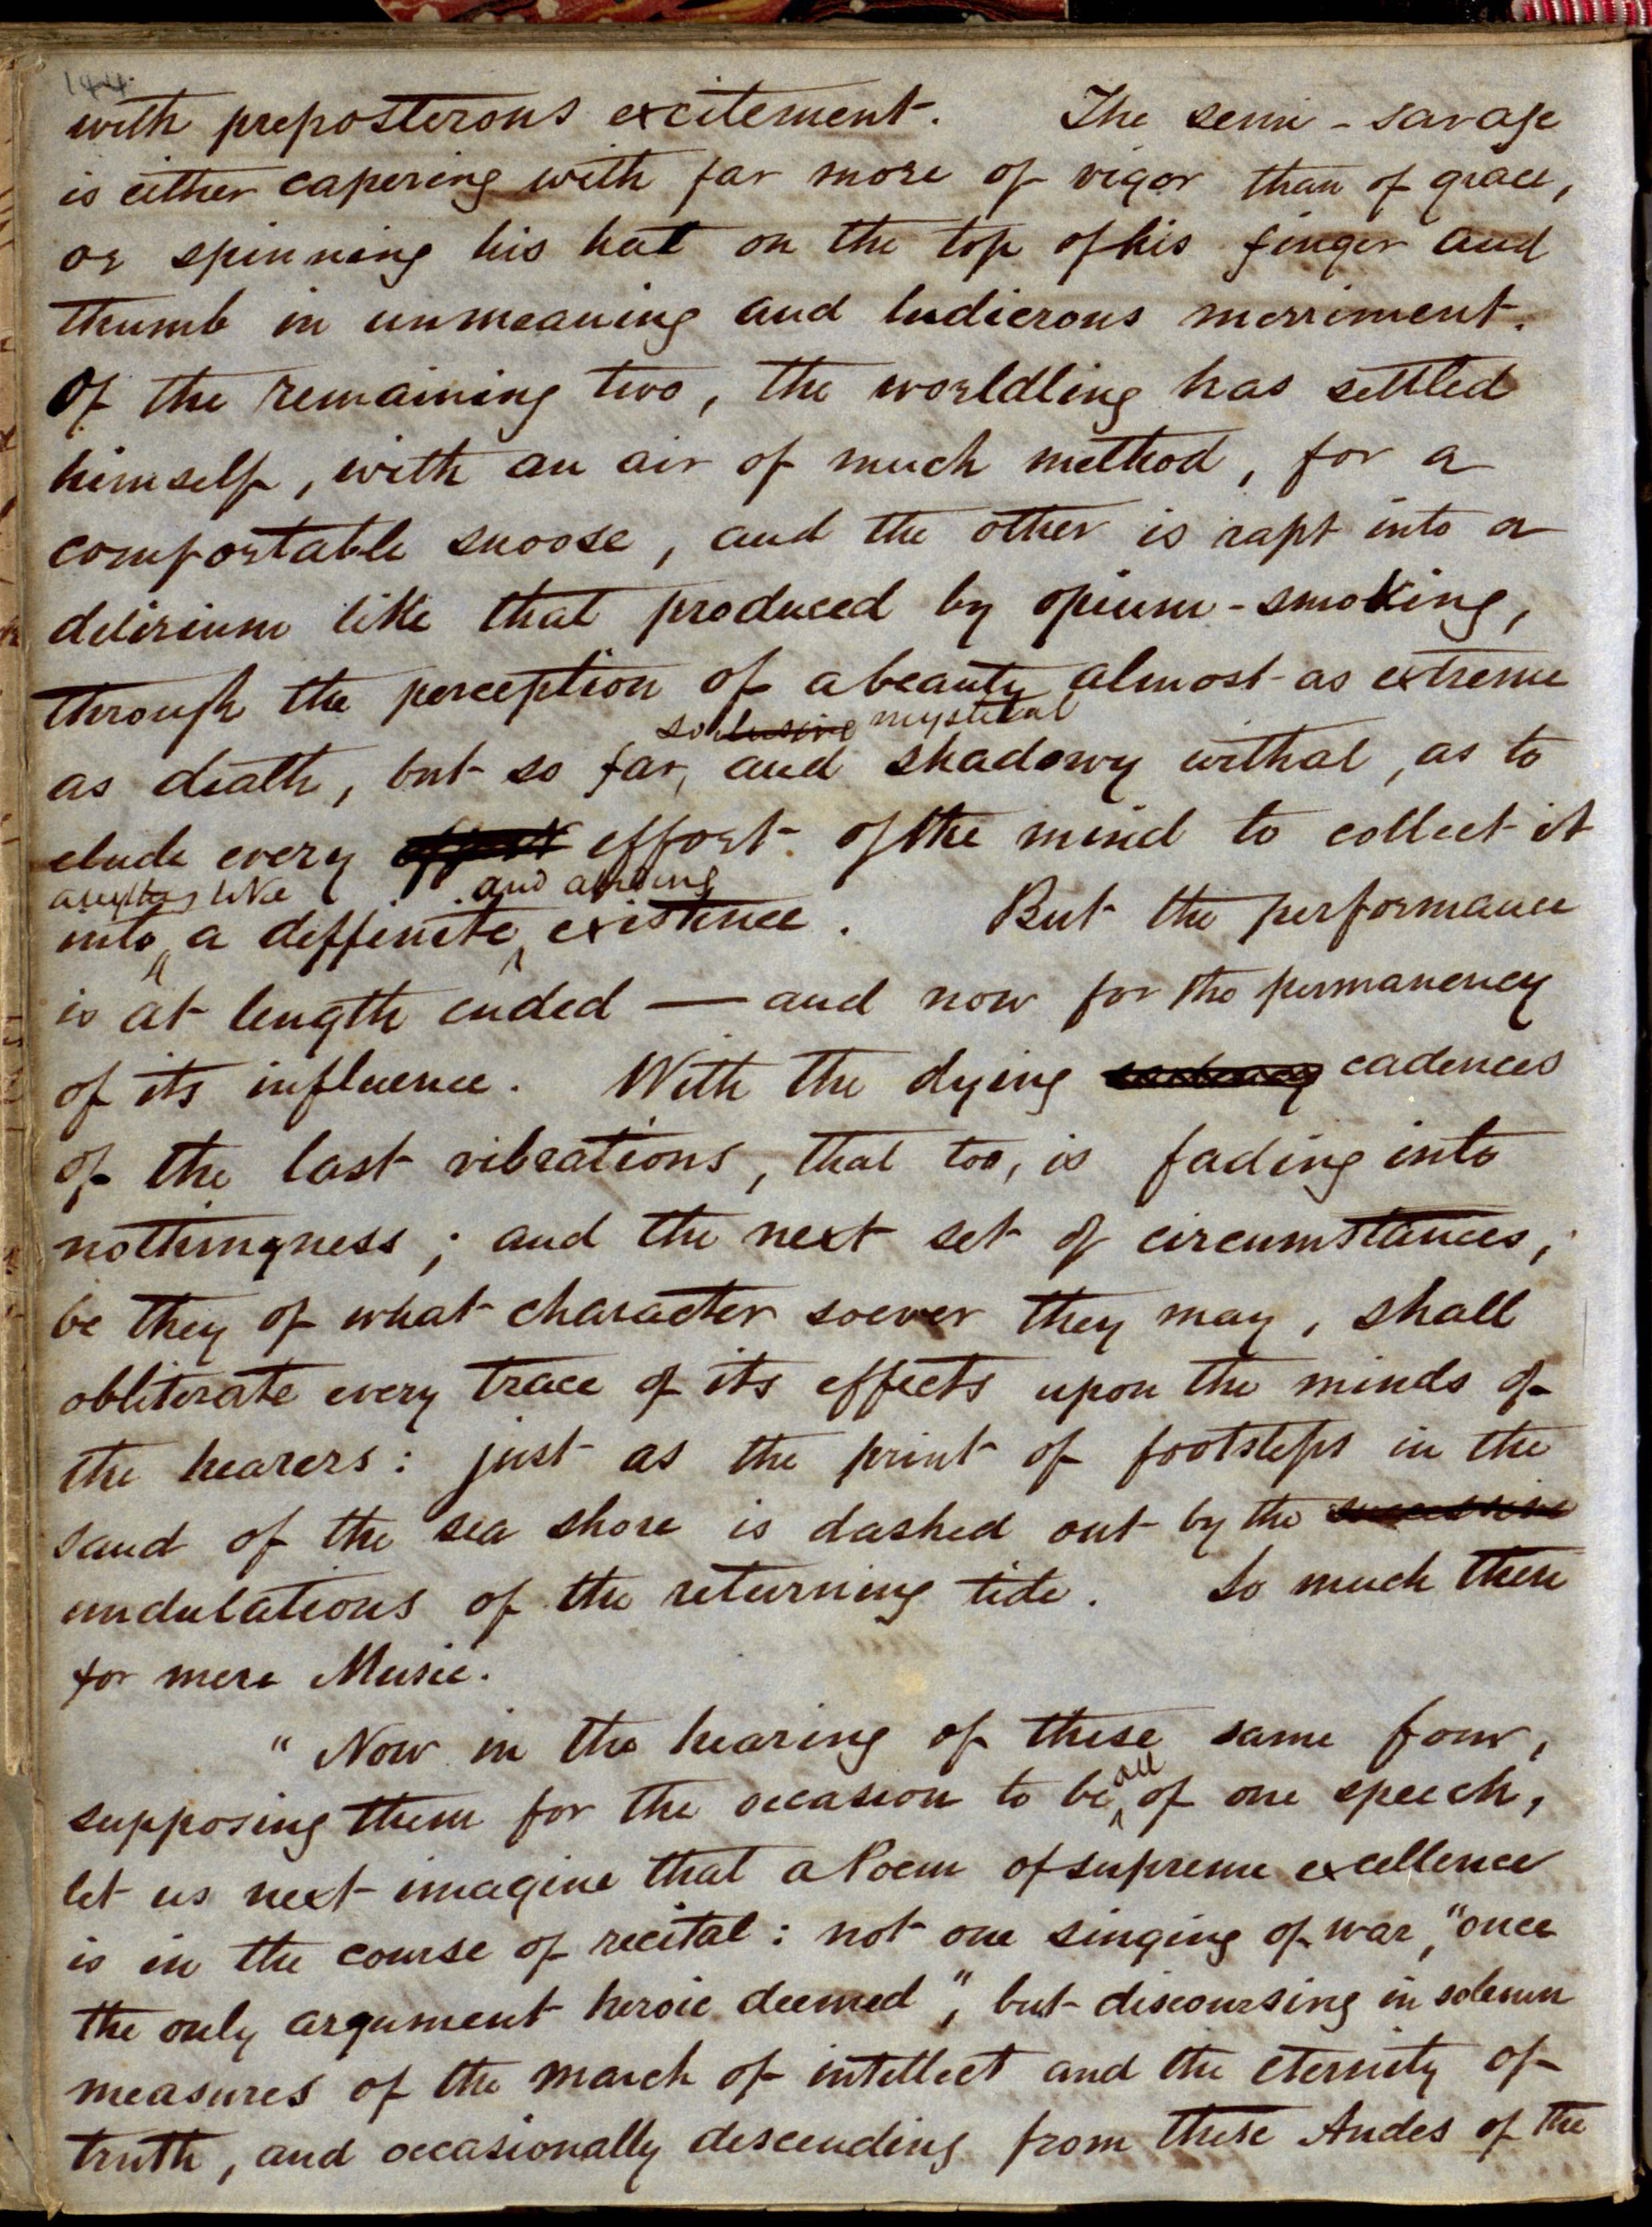 144
with preposterous excitement. The semi-savage
is either capering with far more of vigor than of grace,
or spinning his hat on the top of his finger and
thumb in unmeaning and ludicrous merriment.
Of the remaining two, the worldling has settled
himself, with an air of much method, for a
comfortable snoose, and the other is rapt into a
delirium like that produced by opium-smoking,
through the perception of a beauty almost as extreme
so mystical
as death, but so far, and shadowy withal, as to
elude every effort of the mind to collect it
anything like and abiding
into a diffinite existence. But the performance
is at length ended — and now for the permanency
of its influence. With the dying cadences
of the last vibrations, that too, is fading into
nothingness; and the next set of circumstances,
be they of what character soever they may, shall
obliterate every trace of its effects upon the minds of
the hearers: just as the print of footsteps in the
sand of the sea shore is dashed out by the
undulations of the returning tide. So much then
for mere Music.
"Now in the hearing of these same four,
all
supposing them for the occasion to be of one speech,
let us next imagine that a Poem of supreme excellence
is in the course of recital: not one singing of war, "once
the only argument heroic deemed", but discoursing in solemn
measures of the march of intellect and the eternity of
truth, and occasionally descending from these Andes of the